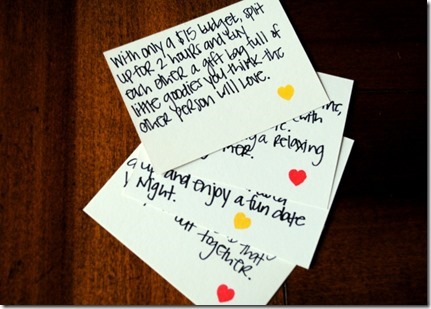 With only a $15 budget, split
up for 2 hours and buy
each other a gift bag full of
little goodies you think the
other person will love.
with
a relaxing
and enjoy a fun date
Night.
that
together.